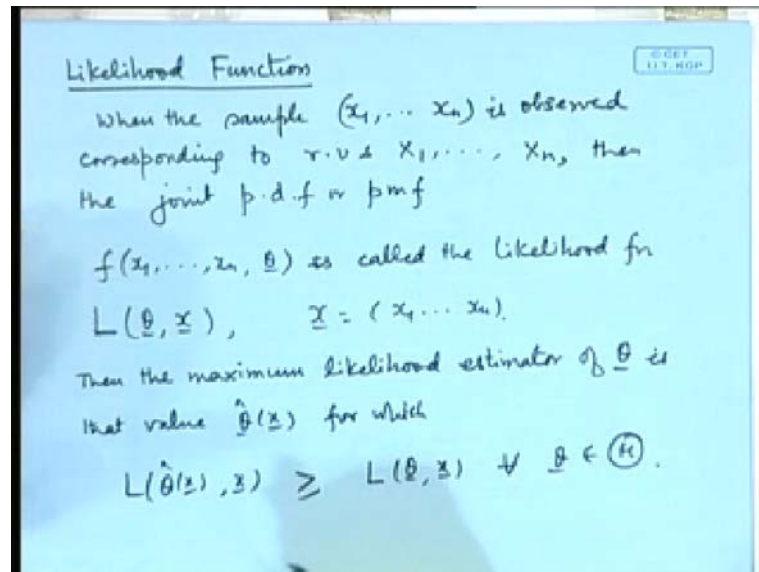 Likelihood Function
© CET
I.I.T. KGP
When the sample (x₁,... xₙ) is observed
corresponding to r.v.s X₁, ...., Xₙ, then
the joint p.d.f or pmf
f(x₁,...,xₙ, θ) is called the likelihood fn
L(θ, x), x = (x₁... xₙ).
Then the maximum likelihood estimator of θ is
that value θ̂(x) for which
L(θ̂(x), x) ≥ L(θ, x) ∀ θ ∈ Ⓗ.